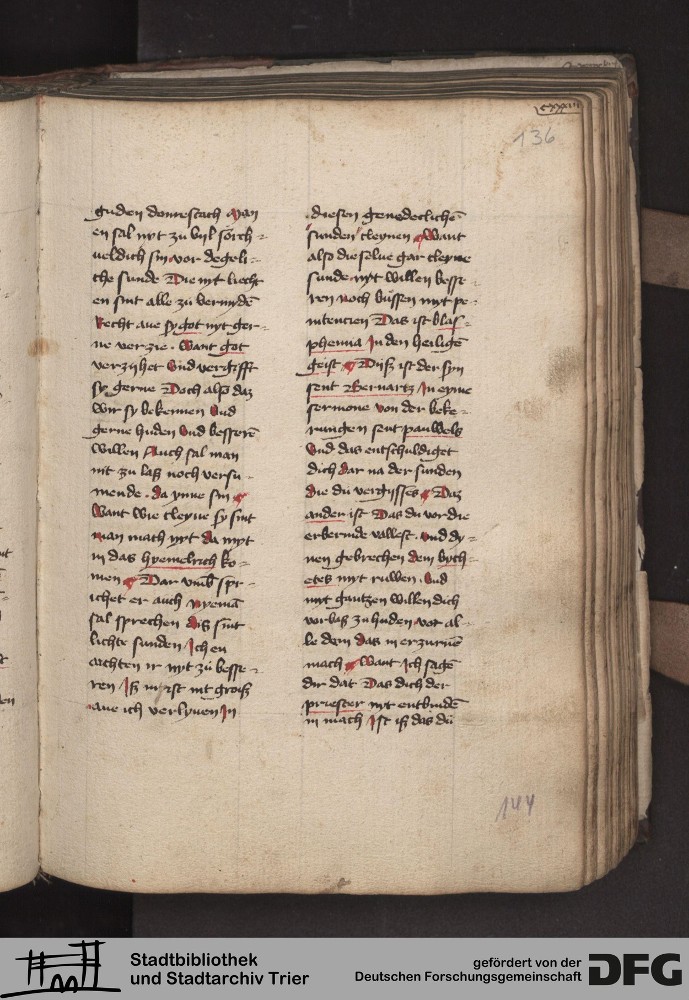 136
guden donrestach Man
en sal nyt zu vyl sorch=
ueldich sin vor degeli=
che sunde Die nyt liecht
en sint alle zu vermyden
Recht aue sy got nyt ger=
ne verzie. Want got
verzyhet Vnd vergifft
sy gerne Doch also daz
wir sy bekennen Vnd
gerne huden Vnd besserē
willen Auch sal man
nit zu laß noch versu=
mende. da ynne sin
Want wie cleyne sy sint
man mach nyt da myt
in das hyemelrich ko=
men Dar vmb spr=
ichet er auch Nyemā
sal sprechen dis sint
lichte sunden Ich en
achten ir nyt zu besse=
ren Iß in ist nit groiß
aue ich verlyuen In
diesen genedeclichē
sunden cleynen Want
also die selue gar cleyne
sunde nyt willen besse=
ren noch büssen myt pe=
nitencien Das ist blas=
phemia In den heiligē
geist Diß ist der syn
sent Bernartz In eyme
sermone von der beke=
rungen sent pauwels
Vnd das entschuldiget
dich dar na der sunden
die du vergisses Daz
ander ist Das du vor die
erbermde vallest. vnd dy=
nen gebrechen dem bych=
etes myt ruwen. Vnd
myt gantzen willen dich
vorbas zu huden vor al=
le dem das in erzurnē
mach Want Ich sage
dir dat Das dich der
priester nyt entbindē
in mach Ist iß das du
144
Stadtbibliothek
und Stadtarchiv Trier
gefördert von der
Deutschen Forschungsgemeinschaft
DFG